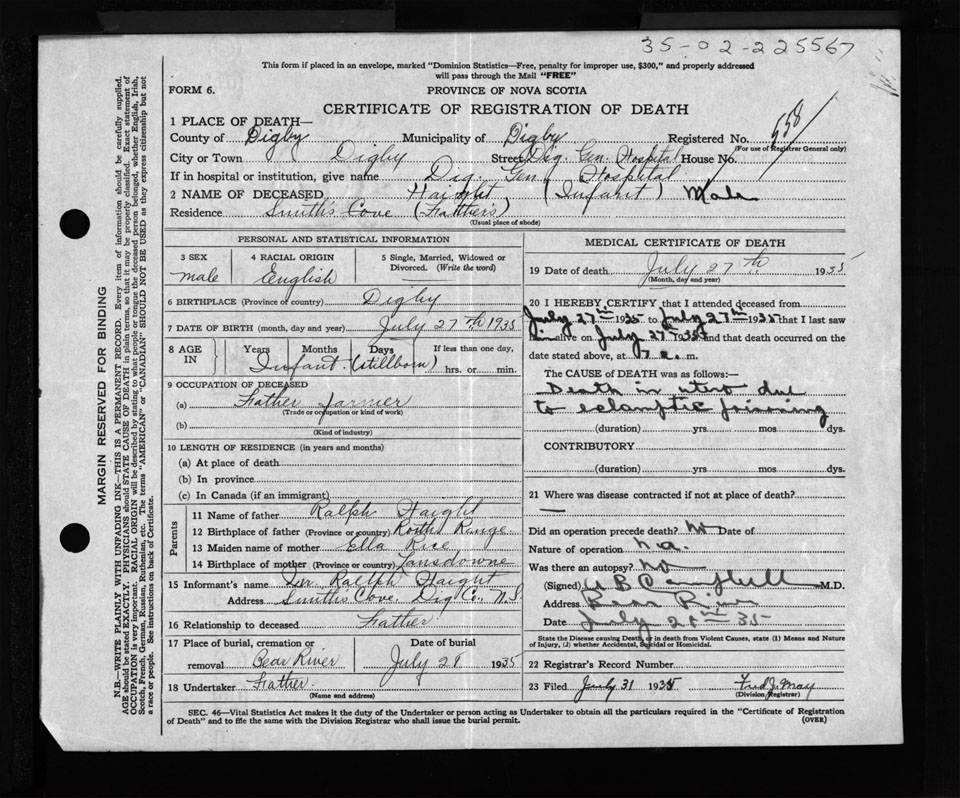 35-02-225567
This form if placed in an envelope, marked "Dominion Statistics—Free, penalty for improper use, $300," and properly addressed
will pass through the Mail "FREE"
FORM 6.
PROVINCE OF NOVA SCOTIA
CERTIFICATE OF REGISTRATION OF DEATH
1 PLACE OF DEATH—
County of Digby Municipality of Digby Registered No. 558
(For use of Registrar General only)
City or Town Digby Street Dig. Gen. Hospital House No.
If in hospital or institution, give name Dig. Gen. Hospital
2 NAME OF DECEASED Haight (Infant) Male
Residence Smith's Cove (Father's)
(Usual place of abode)
PERSONAL AND STATISTICAL INFORMATION
3 SEX male
4 RACIAL ORIGIN English
5 Single, Married, Widowed or Divorced. (Write the word)
6 BIRTHPLACE (Province or country) Digby
7 DATE OF BIRTH (month, day and year) July 27th 1935
8 AGE IN Years Months Days If less than one day,
Infant (stillborn) hrs. or min.
9 OCCUPATION OF DECEASED
(a) Father farmer
(Trade or occupation or kind of work)
(b)
(Kind of industry)
10 LENGTH OF RESIDENCE (in years and months)
(a) At place of death
(b) In province
(c) In Canada (if an immigrant)
Parents
11 Name of father Ralph Haight
12 Birthplace of father (Province or country) Roth Range
13 Maiden name of mother Ella Rice
14 Birthplace of mother (Province or country) Lansdowne
15 Informant's name Mr Ralph Haight
Address Smith's Cove, Dig Co., N.S.
16 Relationship to deceased Father
17 Place of burial, cremation or removal Bear River
Date of burial July 28 1935
18 Undertaker Father
(Name and address)
MEDICAL CERTIFICATE OF DEATH
19 Date of death July 27th 1935
(Month, day and year)
20 I HEREBY CERTIFY that I attended deceased from
July 27th 1935 to July 27th 1935 that I last saw
him alive on July 27 1935 and that death occurred on the
date stated above, at 7 a. m.
The CAUSE OF DEATH was as follows:—
Death in utero due
to eclamptic poisoning
(duration) yrs mos dys.
CONTRIBUTORY
(duration) yrs mos dys.
21 Where was disease contracted if not at place of death?
—
Did an operation precede death? No Date of
Nature of operation na.
Was there an autopsy? No
(Signed) Campbell M.D.
Address Bear River
Date July 28th 35
State the Disease causing Death, or in death from Violent Causes, state (1) Means and Nature
of Injury, (2) whether Accidental, Suicidal or Homicidal.
22 Registrar's Record Number
23 Filed July 31 1935 Fred J. May
(Division Registrar)
SEC. 46—Vital Statistics Act makes it the duty of the Undertaker or person acting as Undertaker to obtain all the particulars required in the "Certificate of Registration
of Death" and to file the same with the Division Registrar who shall issue the burial permit.
(OVER)
MARGIN RESERVED FOR BINDING
N.B.—WRITE PLAINLY WITH UNFADING INK—THIS IS A PERMANENT RECORD. Every item of information should be carefully supplied.
AGE should be stated EXACTLY. PHYSICIANS should STATE CAUSE OF DEATH in plain terms, so that it may be properly classified. Exact statement of
OCCUPATION is very important. RACIAL ORIGIN will be described by stating to what people or tongue the deceased person belonged, whether English, Irish,
Scotch, French, German, Russian, Ruthenian, etc. The terms "AMERICAN" or "CANADIAN" SHOULD NOT BE USED as they express citizenship but not
a race or people. See instructions on back of Certificate.